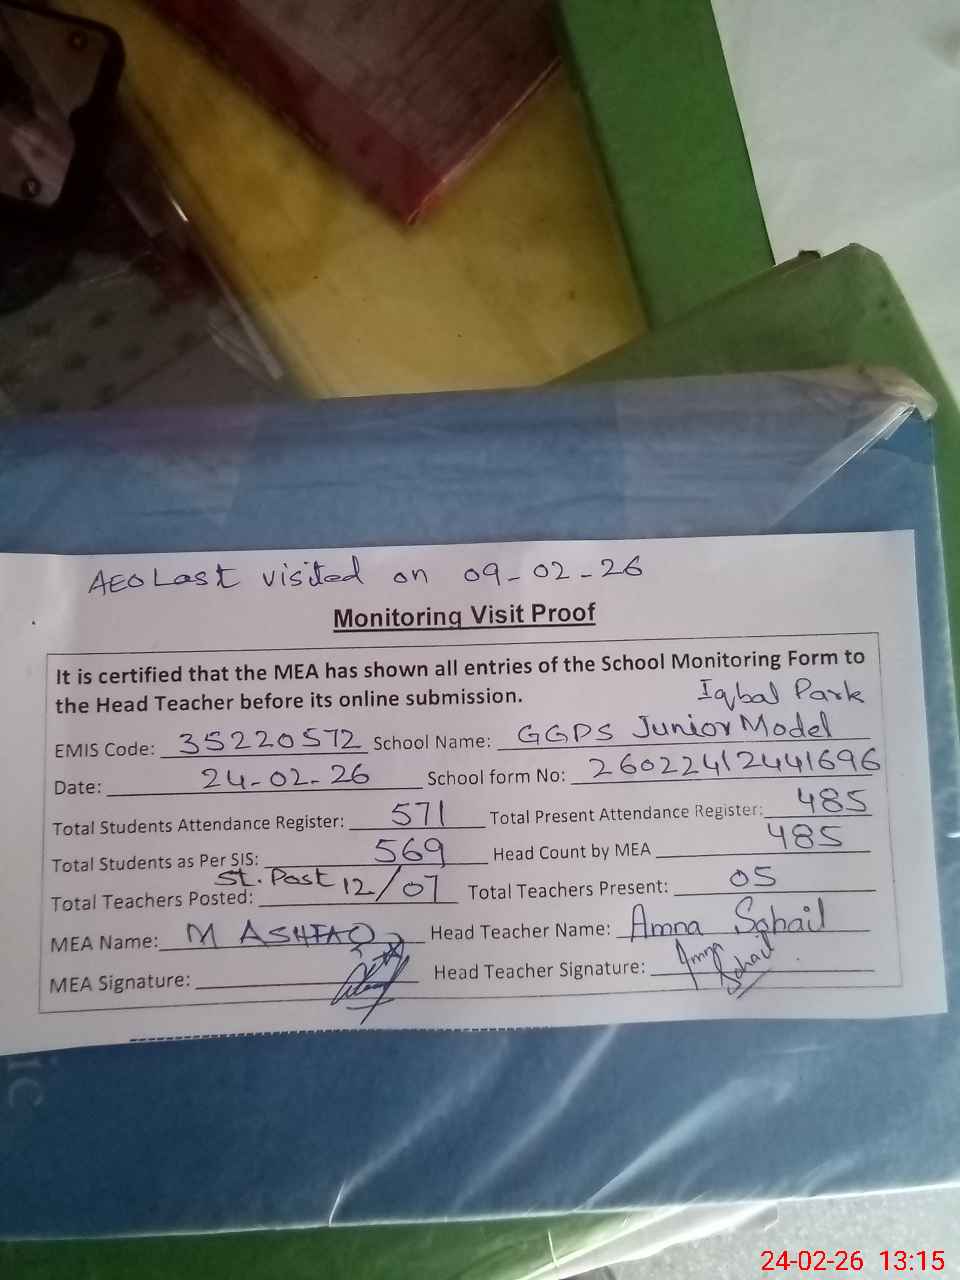 AEO Last visited on 09-02-26
Monitoring Visit Proof
It is certified that the MEA has shown all entries of the School Monitoring Form to
the Head Teacher before its online submission.
Iqbal Park
EMIS Code: 35220572 School Name: GGPS Junior Model
Date: 24-02-26 School form No: 26022412441696
Total Students Attendance Register: 571 Total Present Attendance Register: 485
Total Students as Per SIS: 569 Head Count by MEA 485
St. Post
Total Teachers Posted: 12/07 Total Teachers Present: 05
MEA Name: M ASHFAQ Head Teacher Name: Amna Sohail
MEA Signature: Head Teacher Signature: Amna Sohail
ic
24-02-26 13:15